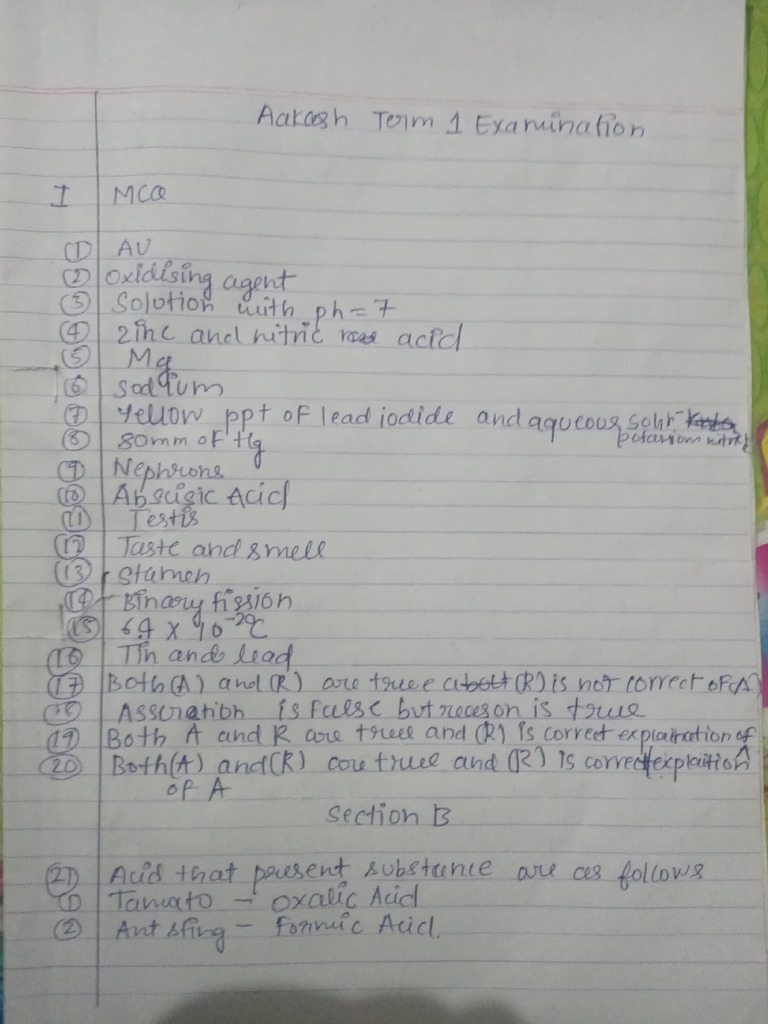 Aakash Term 1 Examination
I MCQ
① AU
② Oxidising agent
③ Solution with ph = 7
④ Zinc and nitric acid
⑤ Mg
⑥ Sodium
⑦ Yellow ppt of lead iodide and aqueous
⑧ 80mm of Hg
⑨ Nephrons
⑩ Abscisic Acid
⑪ Testis
⑫ Taste and smell
⑬ Stamen
⑭ Binary fission
⑮ 64 × 10⁻²⁰C
⑯ Tin and lead
⑰ Both (A) and (R) are true (R) is not correct of (A)
⑱ is false but is true
⑲ Both A and R are true and (R) is correct of A
⑳ Both (A) and (R) are true and (R) is correct
of A
Section B
㉑ Acid that present substance are as follows
① Tamato - Oxalic Acid
② Ant sting - Formic Acid.